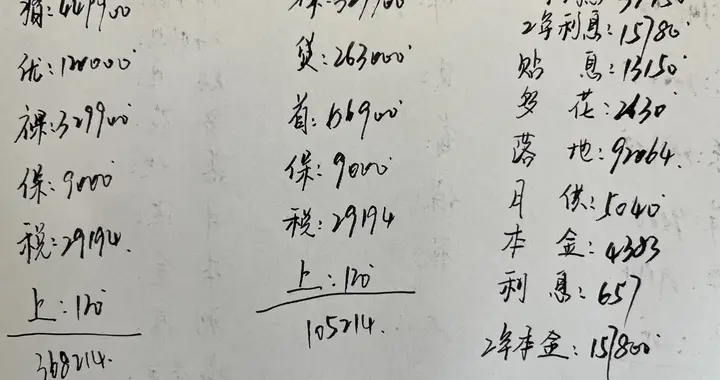 指: 449900
优: 120000
裸: 329900
保: 9000
税: 29194.
上: 120
368214.
裸: 329900
贷: 263000
首: 66900
保: 9000
税: 29194
上: 120
105214.
2年利息: 15780
贴 息: 13150
多 花: 2630
落 地: 92064.
月 供: 5040
本 金: 4383
利 息: 657
2年本金: 157800